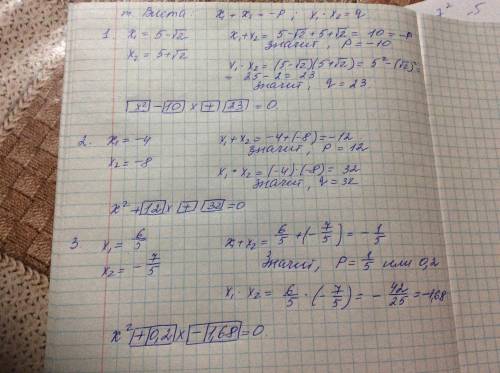 т. Виета: x₁ + x₁ = -p ; x₁ · x₂ = q
1. x₁ = 5-√2 x₁+x₂ = 5-√2+5+√2 = 10 = -p
x₂ = 5+√2 значит, p = -10
x₁ · x₂ = (5-√2)(5+√2) = 5² - (√2)² =
= 25-2 = 23
значит, q = 23
x² - 10 x + 23 = 0
2. x₁ = -4 x₁+x₂ = -4+(-8) = -12
x₂ = -8 значит, p = 12
x₁ · x₂ = (-4)·(-8) = 32
значит, q = 32
x² + 12 x + 32 = 0
3. x₁ = 6/5 x₁+x₂ = 6/5 + (-7/5) = -1/5
x₂ = -7/5 значит, p = 1/5 или 0,2
x₁ · x₂ = 6/5 · (-7/5) = -42/25 = -1,68
x² + 0,2 x - 1,68 = 0